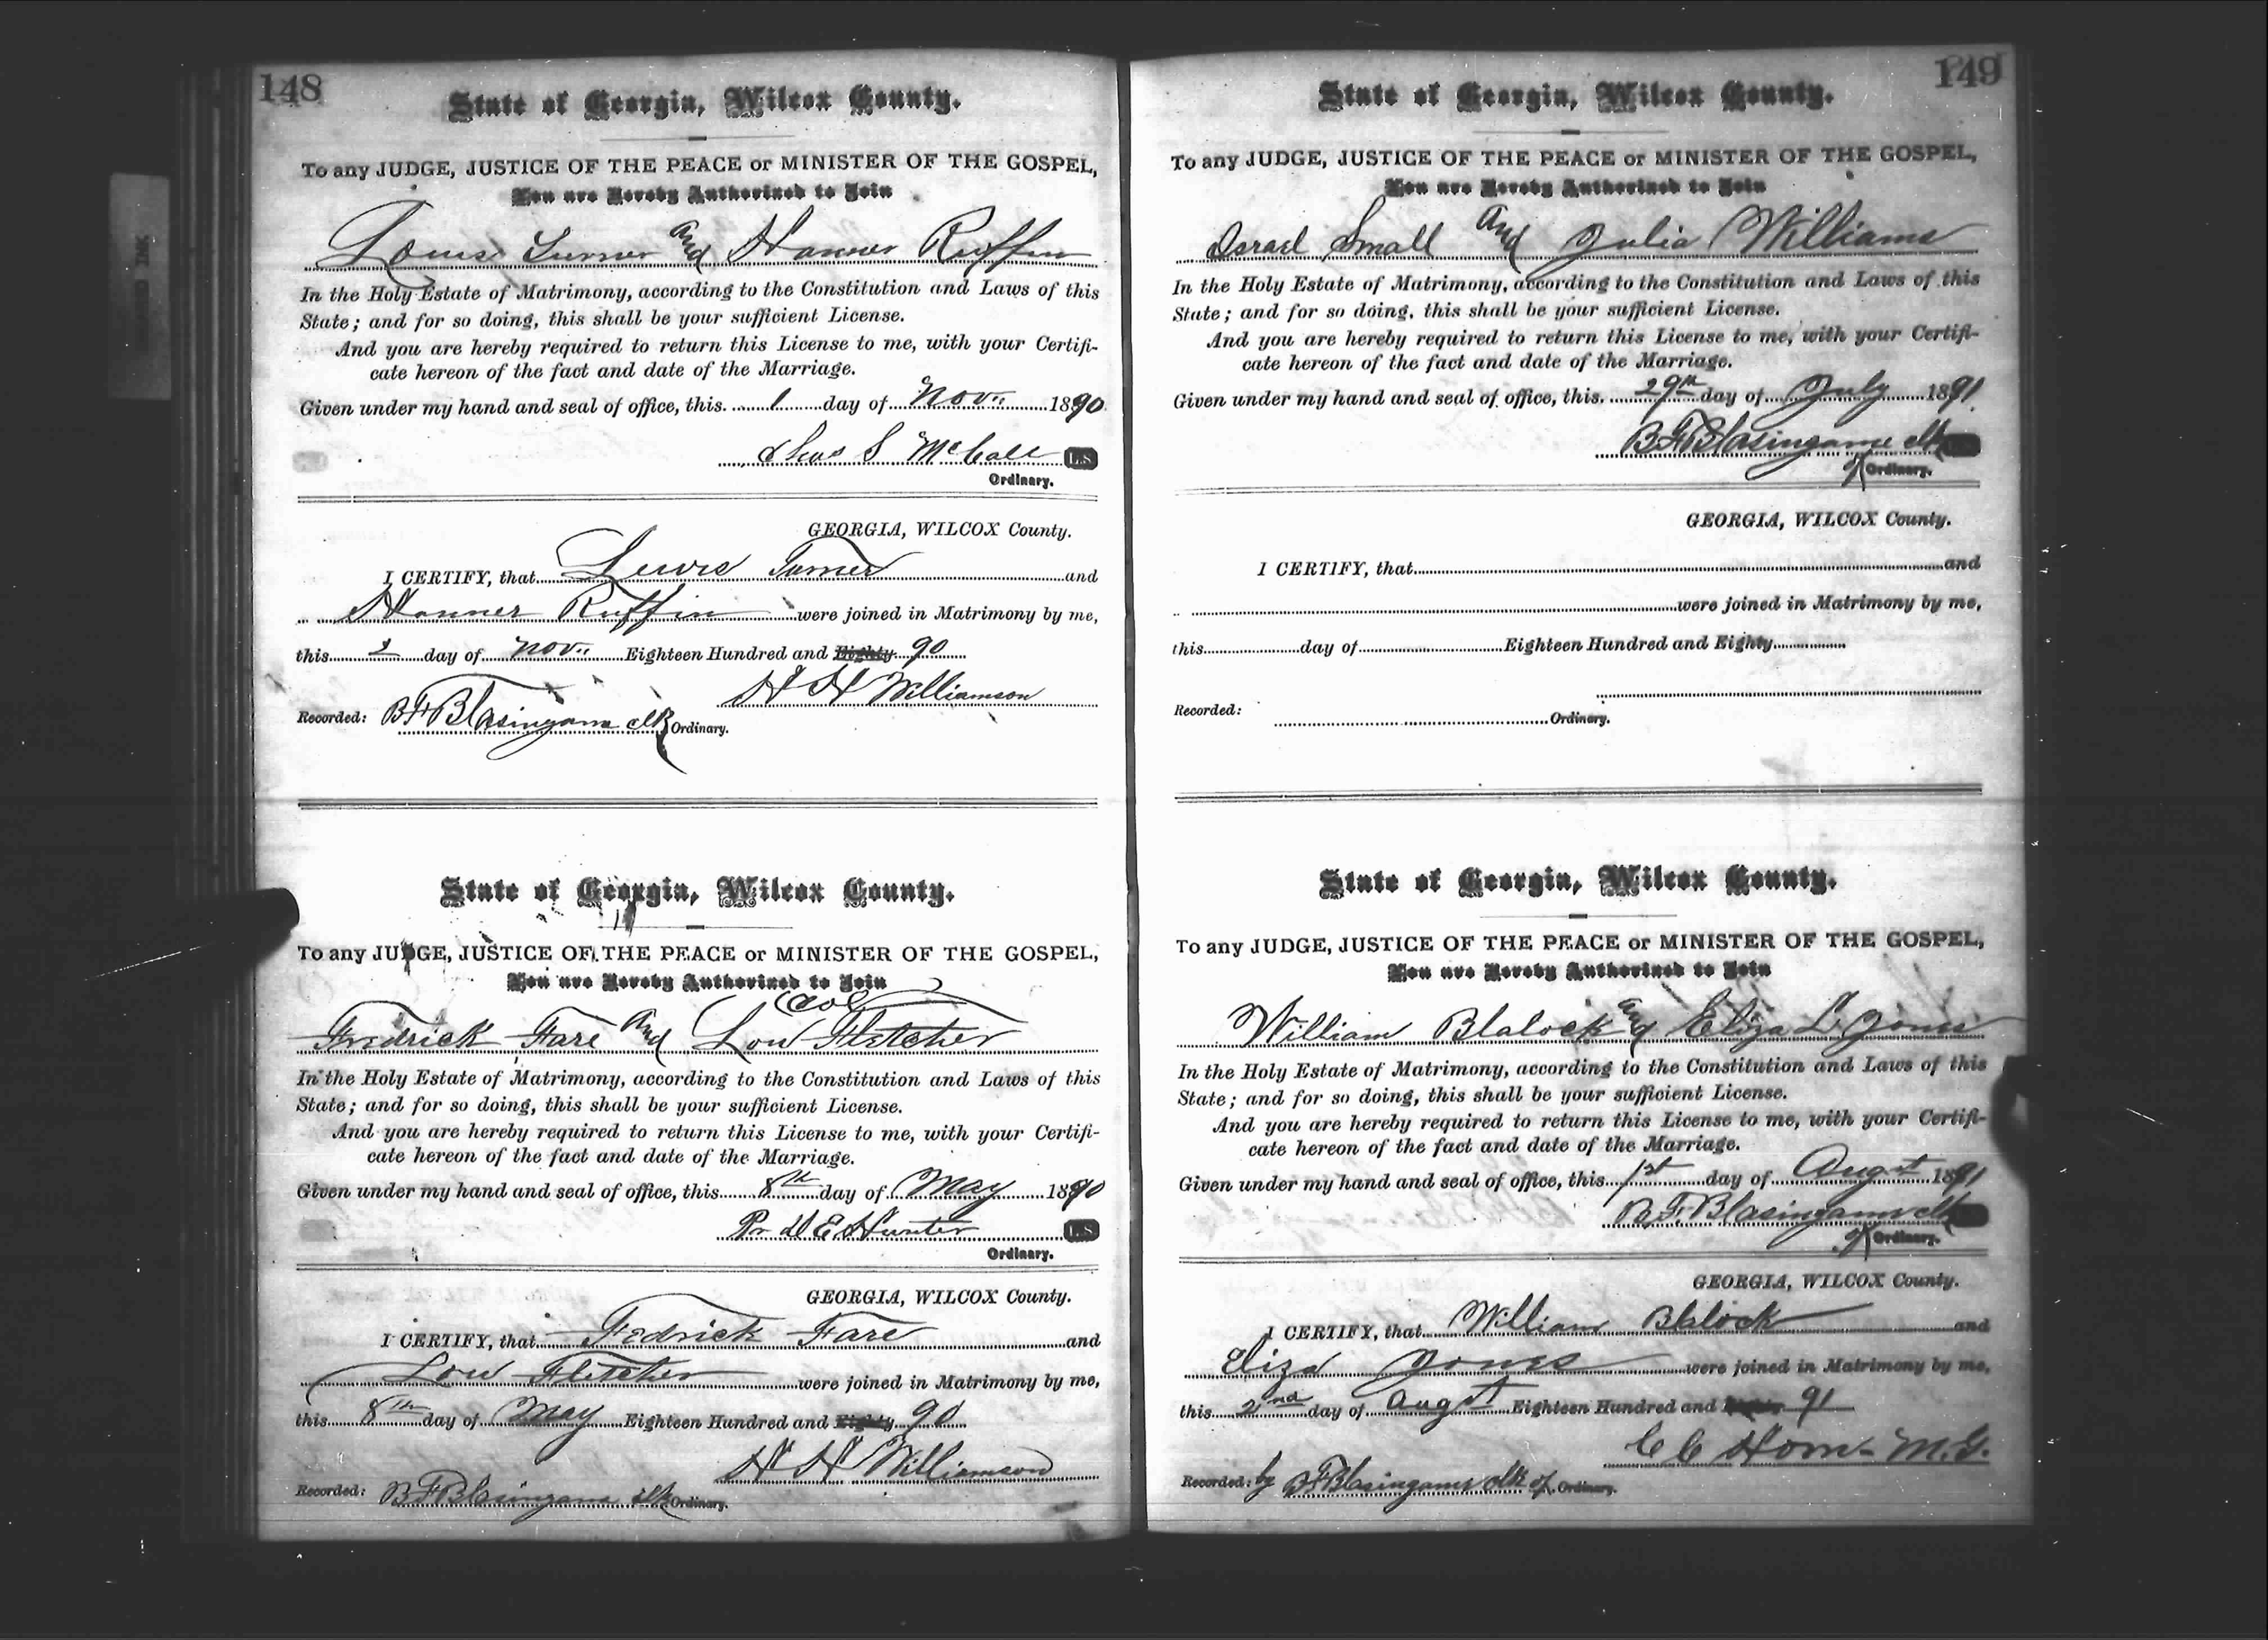 148
State of Georgia, Wilcox County.
To any JUDGE, JUSTICE OF THE PEACE or MINISTER OF THE GOSPEL,
You are Hereby Authorized to Join
Louis Turner and Hanner Ruffin
In the Holy Estate of Matrimony, according to the Constitution and Laws of this
State; and for so doing, this shall be your sufficient License.
And you are hereby required to return this License to me, with your Certifi-
cate hereon of the fact and date of the Marriage.
Given under my hand and seal of office, this 1 day of Nov. 1890
S McCall L.S
Ordinary.
GEORGIA, WILCOX County.
I CERTIFY, that Lewis Turner and
Hanner Ruffin were joined in Matrimony by me,
this 2 day of Nov. Eighteen Hundred and Eighty 90
H H Williamson
Recorded: B F Blasingame clk Ordinary.
State of Georgia, Wilcox County.
To any JUDGE, JUSTICE OF THE PEACE or MINISTER OF THE GOSPEL,
You are Hereby Authorized to Join
(Col)
Fredrick Fare and Lou Fletcher
In the Holy Estate of Matrimony, according to the Constitution and Laws of this
State; and for so doing, this shall be your sufficient License.
And you are hereby required to return this License to me, with your Certifi-
cate hereon of the fact and date of the Marriage.
Given under my hand and seal of office, this 8th day of May 1890
Pr D E Hunter L.S
Ordinary.
GEORGIA, WILCOX County.
I CERTIFY, that Fedrick Fare and
Lou Fletcher were joined in Matrimony by me,
this 8th day of May Eighteen Hundred and Eighty 90
H H Williamson
Recorded: B F Blasingame clk Ordinary.
149
State of Georgia, Wilcox County.
To any JUDGE, JUSTICE OF THE PEACE or MINISTER OF THE GOSPEL,
You are Hereby Authorized to Join
Israel Small and Julia Williams
In the Holy Estate of Matrimony, according to the Constitution and Laws of this
State; and for so doing, this shall be your sufficient License.
And you are hereby required to return this License to me, with your Certifi-
cate hereon of the fact and date of the Marriage.
Given under my hand and seal of office, this 29th day of July 1891
B F Blasingame clk
of Ordinary.
GEORGIA, WILCOX County.
I CERTIFY, that and
were joined in Matrimony by me,
this day of Eighteen Hundred and Eighty
Recorded: Ordinary.
State of Georgia, Wilcox County.
To any JUDGE, JUSTICE OF THE PEACE or MINISTER OF THE GOSPEL,
You are Hereby Authorized to Join
William Blalock and Eliza L. Jones
In the Holy Estate of Matrimony, according to the Constitution and Laws of this
State; and for so doing, this shall be your sufficient License.
And you are hereby required to return this License to me, with your Certifi-
cate hereon of the fact and date of the Marriage.
Given under my hand and seal of office, this 1st day of Augst 1891
B. F. Blasingame clk
of Ordinary.
GEORGIA, WILCOX County.
I CERTIFY, that William Blalock and
Eliza Jones were joined in Matrimony by me,
this 2nd day of Augst Eighteen Hundred and Eighty 91
C C Horn - M.G.
Recorded: by B F Blasingame clk of Ordinary.